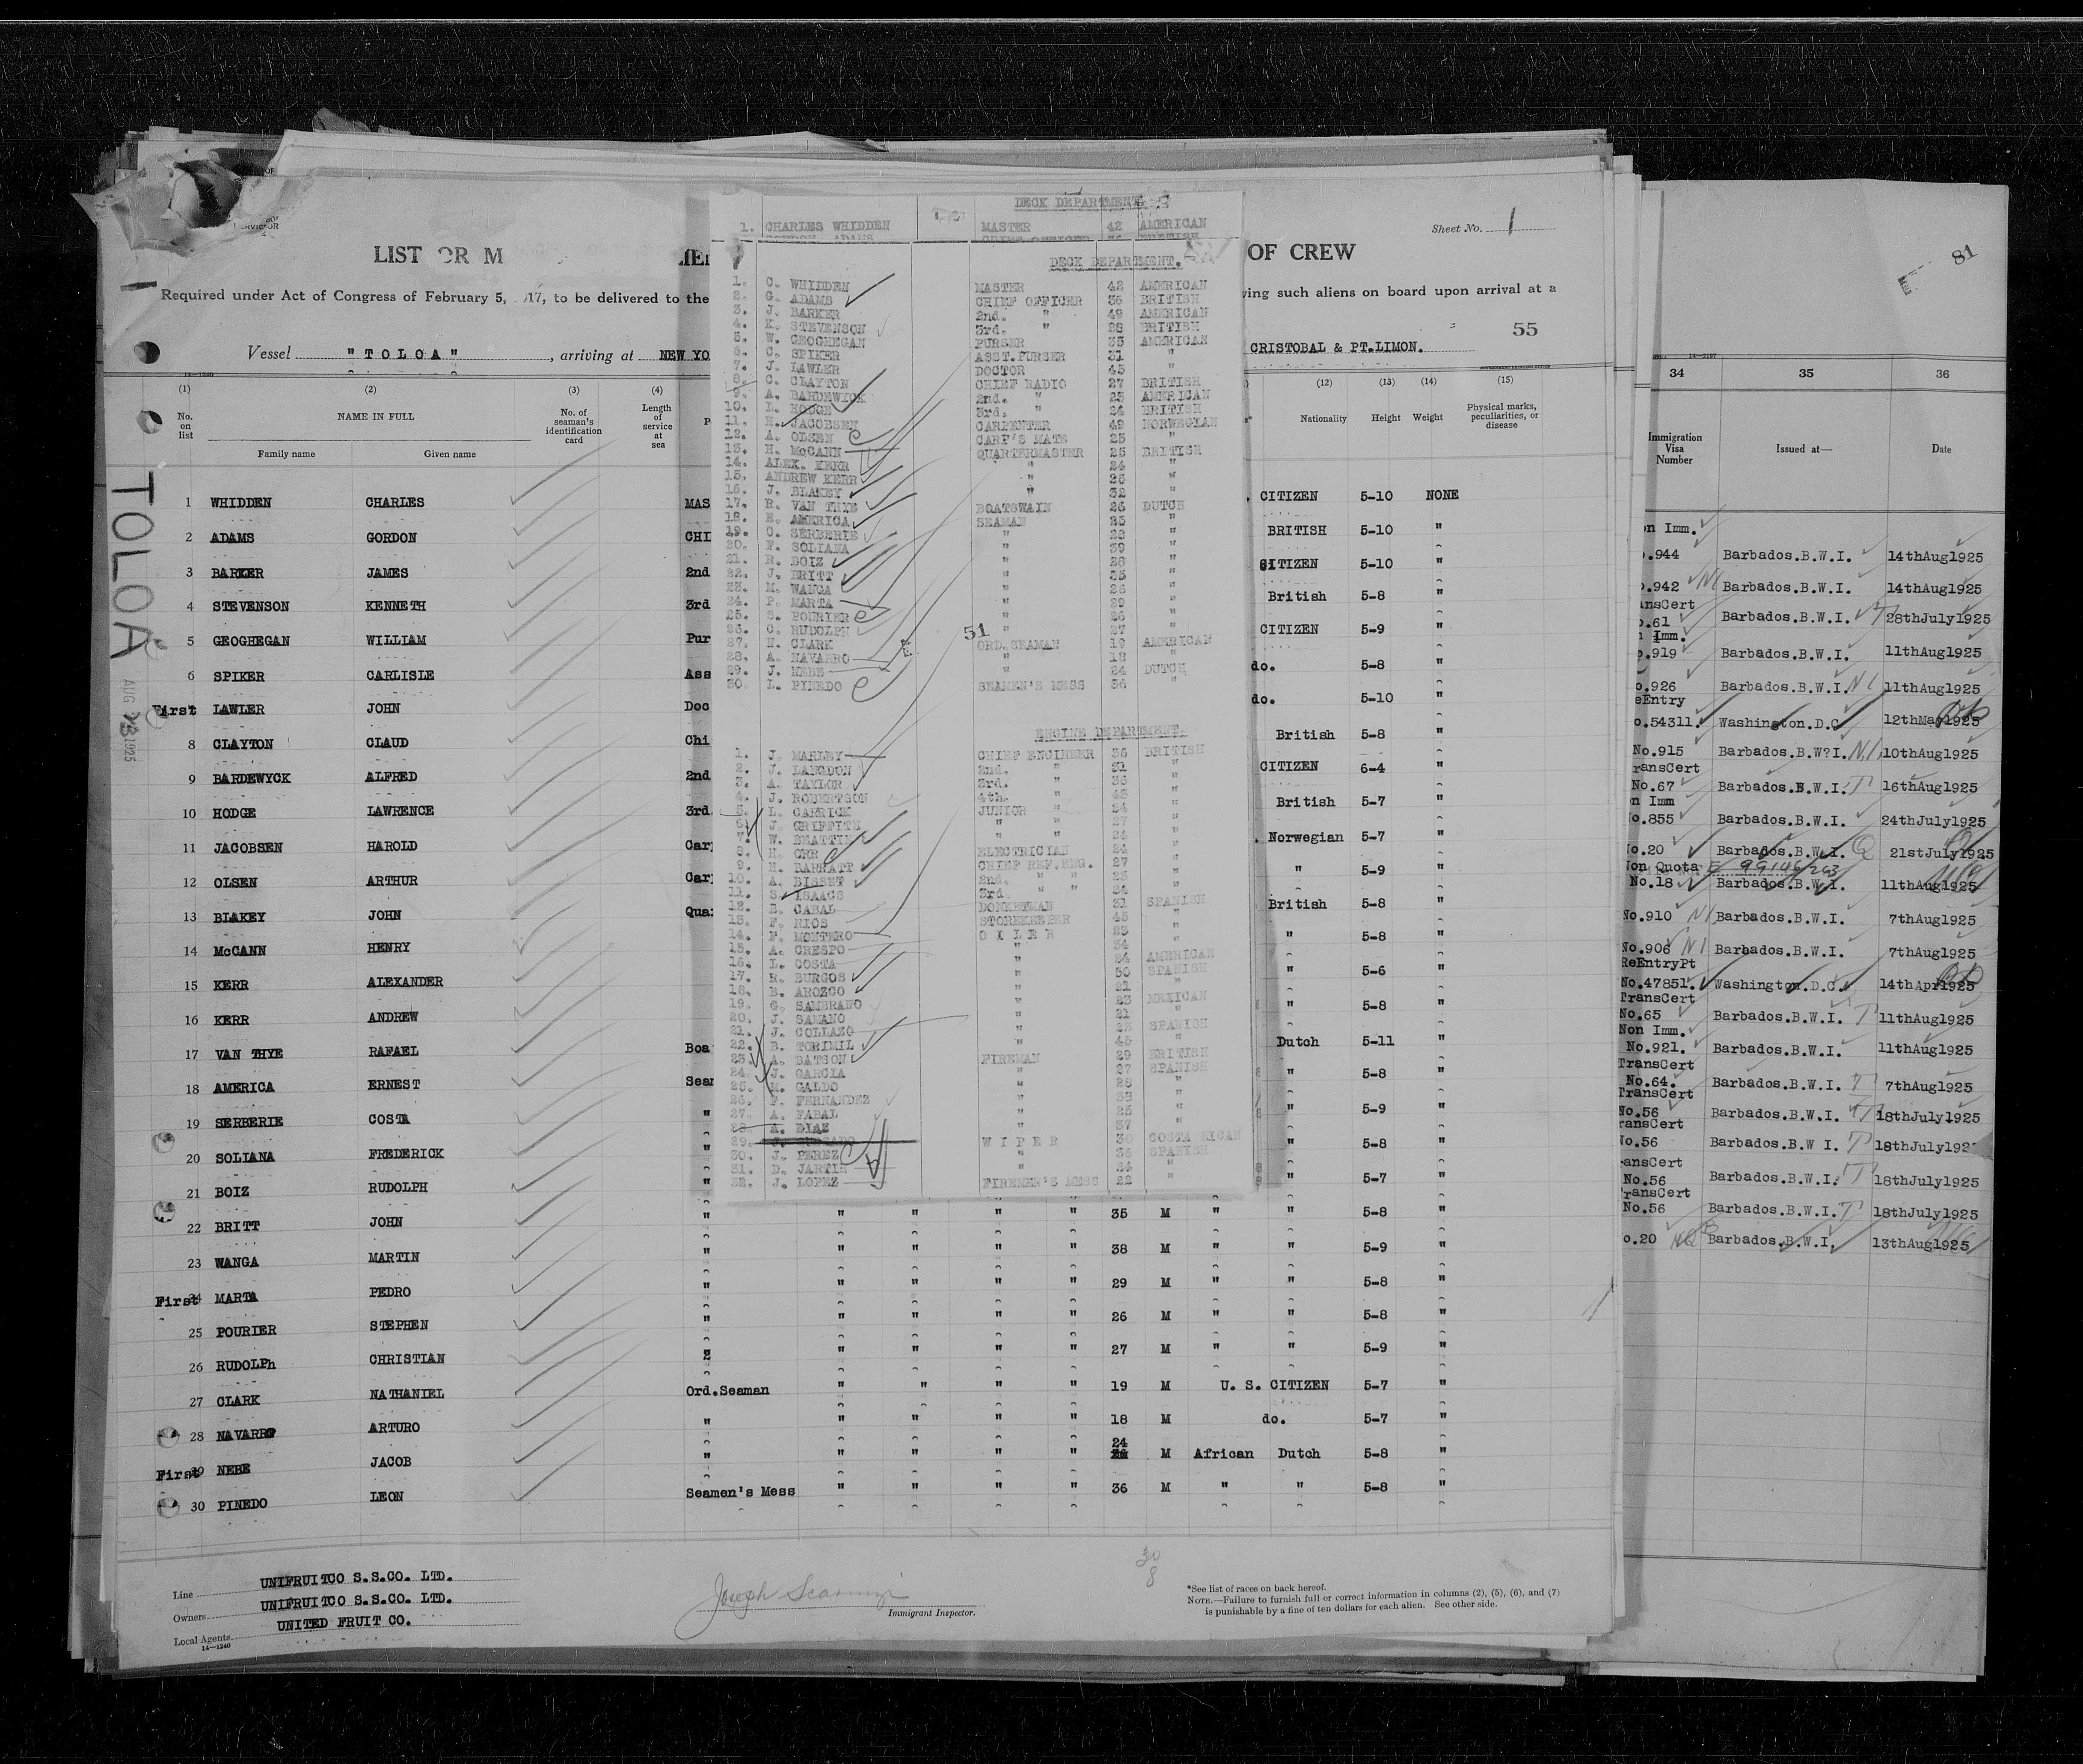 Sheet No. 1
81
LIST OR M
OF CREW
Required under Act of Congress of February 5, 17, to be delivered to the
ving such aliens on board upon arrival at a
55
Vessel "TOLOA", arriving at NEW YO
CRISTOBAL & PT.LIMON.
TOLOA
AUG 1925
(1) (2) (3) (4) (12) (13) (14) (15)
No. on list
NAME IN FULL
Family name Given name
No. of seaman's identification card
Length of service at sea
Nationality Height Weight Physical marks, peculiarities, or disease
1 WHIDDEN CHARLES MAS CITIZEN 5-10 NONE
2 ADAMS GORDON CHI BRITISH 5-10 "
3 BARKER JAMES 2nd CITIZEN 5-10 "
4 STEVENSON KENNETH 3rd British 5-8 "
5 GEOGHEGAN WILLIAM Pur CITIZEN 5-9 "
6 SPIKER CARLISLE Ass do. 5-8 "
First LAWLER JOHN Doc do. 5-10 "
8 CLAYTON CLAUD Chi British 5-8 "
9 BARDEWYCK ALFRED 2nd CITIZEN 6-4 "
10 HODGE LAWRENCE 3rd British 5-7 "
11 JACOBSEN HAROLD Car Norwegian 5-7 "
12 OLSEN ARTHUR Car " 5-9 "
13 BLAKEY JOHN Qua British 5-8 "
14 McCANN HENRY " 5-8 "
15 KERR ALEXANDER " 5-6 "
16 KERR ANDREW " 5-8 "
17 VAN THYE RAFAEL Boa Dutch 5-11 "
18 AMERICA ERNEST Sea " 5-8 "
19 SERBERIE COSTA " " 5-9 "
20 SOLIANA FREDERICK " " 5-8 "
21 BOIZ RUDOLPH " " 5-7 "
22 BRITT JOHN " " " " " 35 M " " 5-8 "
23 WANGA MARTIN " " " " " 38 M " " 5-9 "
First 24 MARTA PEDRO " " " " " 29 M " " 5-8 "
25 POURIER STEPHEN " " " " " 26 M " " 5-8 "
26 RUDOLPh CHRISTIAN " " " " 27 M " " 5-9 "
27 CLARK NATHANIEL Ord.Seaman " " " " 19 M U. S. CITIZEN 5-7 "
28 NAVARRO ARTURO " " " " " 18 M do. 5-7 "
First 29 NEBE JACOB " " " " " 24 M African Dutch 5-8 "
30 PINEDO LEON Seamen's Mess " " " " 36 M " " 5-8 "
DECK DEPARTMENT.
1. CHARLES WHIDDEN MASTER 42 AMERICAN
DECK DEPARTMENT.
1. C. WHIDDEN MASTER 42 AMERICAN
2. G. ADAMS CHIEF OFFICER 36 BRITISH
3. J. BARKER 2nd. " 49 AMERICAN
4. K. STEVENSON 3rd. " 28 BRITISH
5. W. GEOGHEGAN PURSER 35 AMERICAN
6. C. SPIKER ASST.PURSER 31 "
7. J. LAWLER DOCTOR 45 "
8. C. CLAYTON CHIEF RADIO 27 BRITISH
9. A. BARDEWICK 2nd. " 23 AMERICAN
10. L. HODGE 3rd. " 24 BRITISH
11. H. JACOBSEN CARPENTER 49 NORWEGIAN
12. A. OLSEN CARP'S MATE 25 "
13. H. McCANN QUARTERMASTER 25 BRITISH
14. ALEX. KERR " 24 "
15. ANDREW KERR " 26 "
16. J. BLAKEY " 32 "
17. R. VAN THYE BOATSWAIN 26 DUTCH
18. E. AMERICA SEAMAN 25 "
19. C. SERBERIE " 22 "
20. F. SOLIANA " 39 "
21. R. BOIZ " 28 "
22. J. BRITT " 35 "
23. M. WANGA " "
24. P. MARTA " 29 "
25. S. POURIER " 26 "
26. C. RUDOLPH " 27 "
51
27. N. CLARK ORD.SEAMAN 19 AMERICAN
28. A. NAVARRO " 18 "
29. J. NEBE " 24 DUTCH
30. L. PINEDO SEAMEN'S MESS 36 "
ENGINE DEPARTMENT.
1. J. MARLEY CHIEF ENGINEER 36 BRITISH
2. J. LANGDON 2nd. " 31 "
3. A. TAYLOR 3rd. " 36 "
4. J. ROBERTSON 4th. " "
5. L. CARRICK JUNIOR " 24 "
6. J. GRIFFITH " " 27 "
7. W. BEATTIE " " 24 "
8. H. ORR ELECTRICIAN 24 "
9. H. BARNATT CHIEF REF.ENG. 27 "
10. A. BISSET 2nd. " " 23 "
11. S. ISAACS 3rd. " " 24 "
12. E. CABAL DONKEYMAN 31 SPANISH
13. F. RIOS STOREKEEPER 45 "
14. F. MONTERO OILER 23 "
15. A. CRESPO " 34 "
16. L. COSTA " 24 AMERICAN
17. R. BURGOS " 50 SPANISH
18. B. AROZCO " 21 "
19. G. SAMBRANO " 23 MEXICAN
20. J. SAMANO " 21 "
21. J. COLLAZO " SPANISH
22. B. TORIMIL " 45 "
23. A. BATSON FIREMAN 29 BRITISH
24. J. GARCIA " 27 SPANISH
25. M. GALDO " 28 "
26. F. FERNANDEZ " "
27. A. FABAL " 25 "
28. A. DIAZ " 37 "
29. WIPER 30 COSTA RICAN
30. J. PEREZ " 36 SPANISH
31. D. JARTIN " 24 "
32. J. LOPEZ FIREMEN'S MESS 22 "
34 35 36
Immigration Visa Number Issued at— Date
n Imm.
.944 Barbados.B.W.I. 14thAug1925
.942 Barbados.B.W.I. 14thAug1925
ansCert
.61 Barbados.B.W.I. 28thJuly1925
Imm.
.919 Barbados.B.W.I. 11thAug1925
o.926 Barbados.B.W.I. 11thAug1925
eEntry
o.54311. Washington.D.C 12thMay1925
No.915 Barbados.B.W?I. 10thAug1925
ransCert
No.67 Barbados.B.W.I. 16thAug1925
n Imm
o.855 Barbados.B.W.I. 24thJuly1925
o.20 Barbados.B.W.I. 21stJuly1925
Non Quota
No.18 Barbados.B.W.I. 11thAug1925
No.910 Barbados.B.W.I. 7thAug1925
No.906 Barbados.B.W.I. 7thAug1925
ReEntryPt
No.47851. Washington.D.C. 14thApr1925
TransCert
No.65 Barbados.B.W.I. 11thAug1925
Non Imm.
No.921. Barbados.B.W.I. 11thAug1925
TransCert
No.64. Barbados.B.W.I. 7thAug1925
TransCert
No.56 Barbados.B.W.I. 18thJuly1925
ransCert
o.56 Barbados.B.W I. 18thJuly192
ansCert
No.56 Barbados.B.W.I. 18thJuly1925
ransCert
No.56 Barbados.B.W.I. 18thJuly1925
o.20 Barbados.B.W.I. 13thAug1925
30
8
Line UNIFRUITCO S.S.CO. LTD.
Owners UNIFRUITCO S.S.CO. LTD.
Local Agents UNITED FRUIT CO.
14—1240
Joseph
Immigrant Inspector.
*See list of races on back hereof.
NOTE.—Failure to furnish full or correct information in columns (2), (5), (6), and (7)
is punishable by a fine of ten dollars for each alien. See other side.